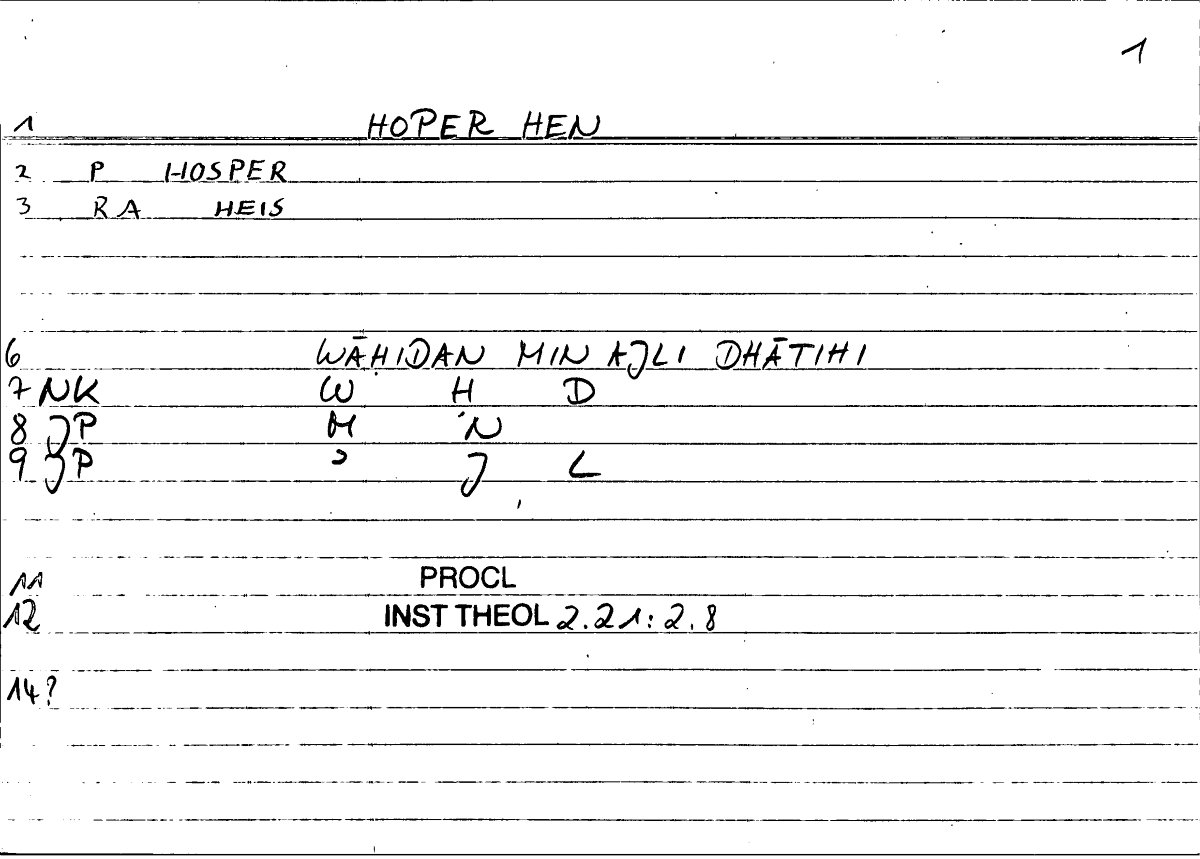 1
1 HOPER HEN
2 P HOSPER
3 RA HEIS
6 WĀḤIDAN MIN AJLI DHĀTIHI
7 NK W Ḥ D
8 JP M N
9 JP ʾ J L
11 PROCL
12 INST THEOL 2.21:2.8
14?